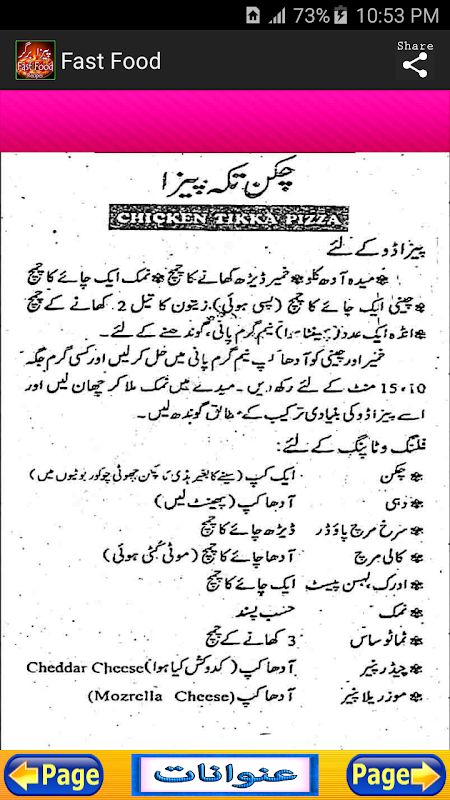 73% 10:53 PM
پیزا برگر
Fast Food
Fast Food
Share
چکن تکہ پیزا
CHICKEN TIKKA PIZZA
پیزا ڈو کے لئے
میدہ آدھ کلو خمیر ڈیڑھ کھانے کا چمچ نمک ایک چائے کا چمچ
چینی ایک چائے کا چمچ (پسی ہوئی) زیتون کا تیل 2 کھانے کے چمچ
انڈہ ایک عدد (پھینٹا ہوا) نیم گرم پانی، گوندھنے کے لئے۔
خمیر اور چینی کو آدھا کپ نیم گرم پانی میں حل کر لیں اور کسی گرم جگہ
10، 15 منٹ کے لئے رکھ دیں۔ میدے میں نمک ملا کر چھان لیں اور
اسے پیزا ڈو کی بنیادی ترکیب کے مطابق گوندھ لیں۔
فلنگ و ٹاپنگ کے لئے:
چکن ایک کپ (سینے کا بغیر ہڈی کا چکن چھوٹی چوکور بوٹیوں میں)
دہی آدھا کپ (پھینٹ لیں)
سرخ مرچ پاؤڈر ڈیڑھ چائے کا چمچ
کالی مرچ آدھا چائے کا چمچ (موٹی کُٹی ہوئی)
ادرک لہسن پیسٹ ایک چائے کا چمچ
نمک حسب پسند
ٹماٹو ساس 3 کھانے کے چمچ
چیڈر پنیر آدھا کپ (کدوکش کیا ہوا) Cheddar Cheese
موزریلا پنیر آدھا کپ (Mozrella Cheese)
Page
عنوانات
Page